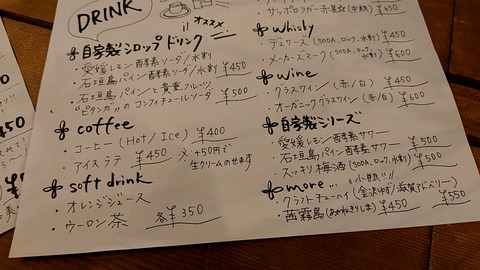 DRINK
オススメ
自家製シロップドリンク
・愛媛レモン酵素ソーダ/水割
・石垣島パイン酵素ソーダ/水割 ¥450
・石垣島パインと貴重フルーツ
"ピタンガ"のコンフィチュールソーダ ¥500
coffee
・コーヒー (Hot / Ice) ¥400
・アイスラテ ¥450 ※+50円で
生クリームのせます
soft drink
・オレンジジュース
・ウーロン茶 各¥350
・サッポロラガー赤星☆(中瓶) ¥650
whisky
・デュワーズ (SODA、ロック、水割) ¥450
・メーカーズマーク (SODA、ロック、水割) ¥600
wine
・グラスワイン (赤/白) ¥450
・オーガニックグラスワイン (赤/白) ¥600
自家製シリーズ
・愛媛レモン酵素サワー
・石垣島パイン酵素サワー ¥500
・スッキリ梅酒 (SODA、ロック、水割) ¥500
more...
小瓶!!
・クラフトチューハイ (金沢ゆず/滋賀アドベリー) ¥550
・茜霧島 (あかねきりしま) ¥450